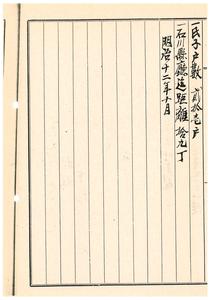 一氏子戸數 貳拾壱戸
一石川縣廳迠距離 拾九丁
明治十二年十月